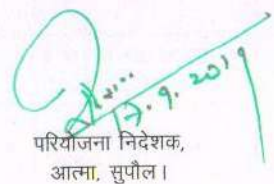 17.9.2019
परियोजना निदेशक,
आत्मा, सुपौल।